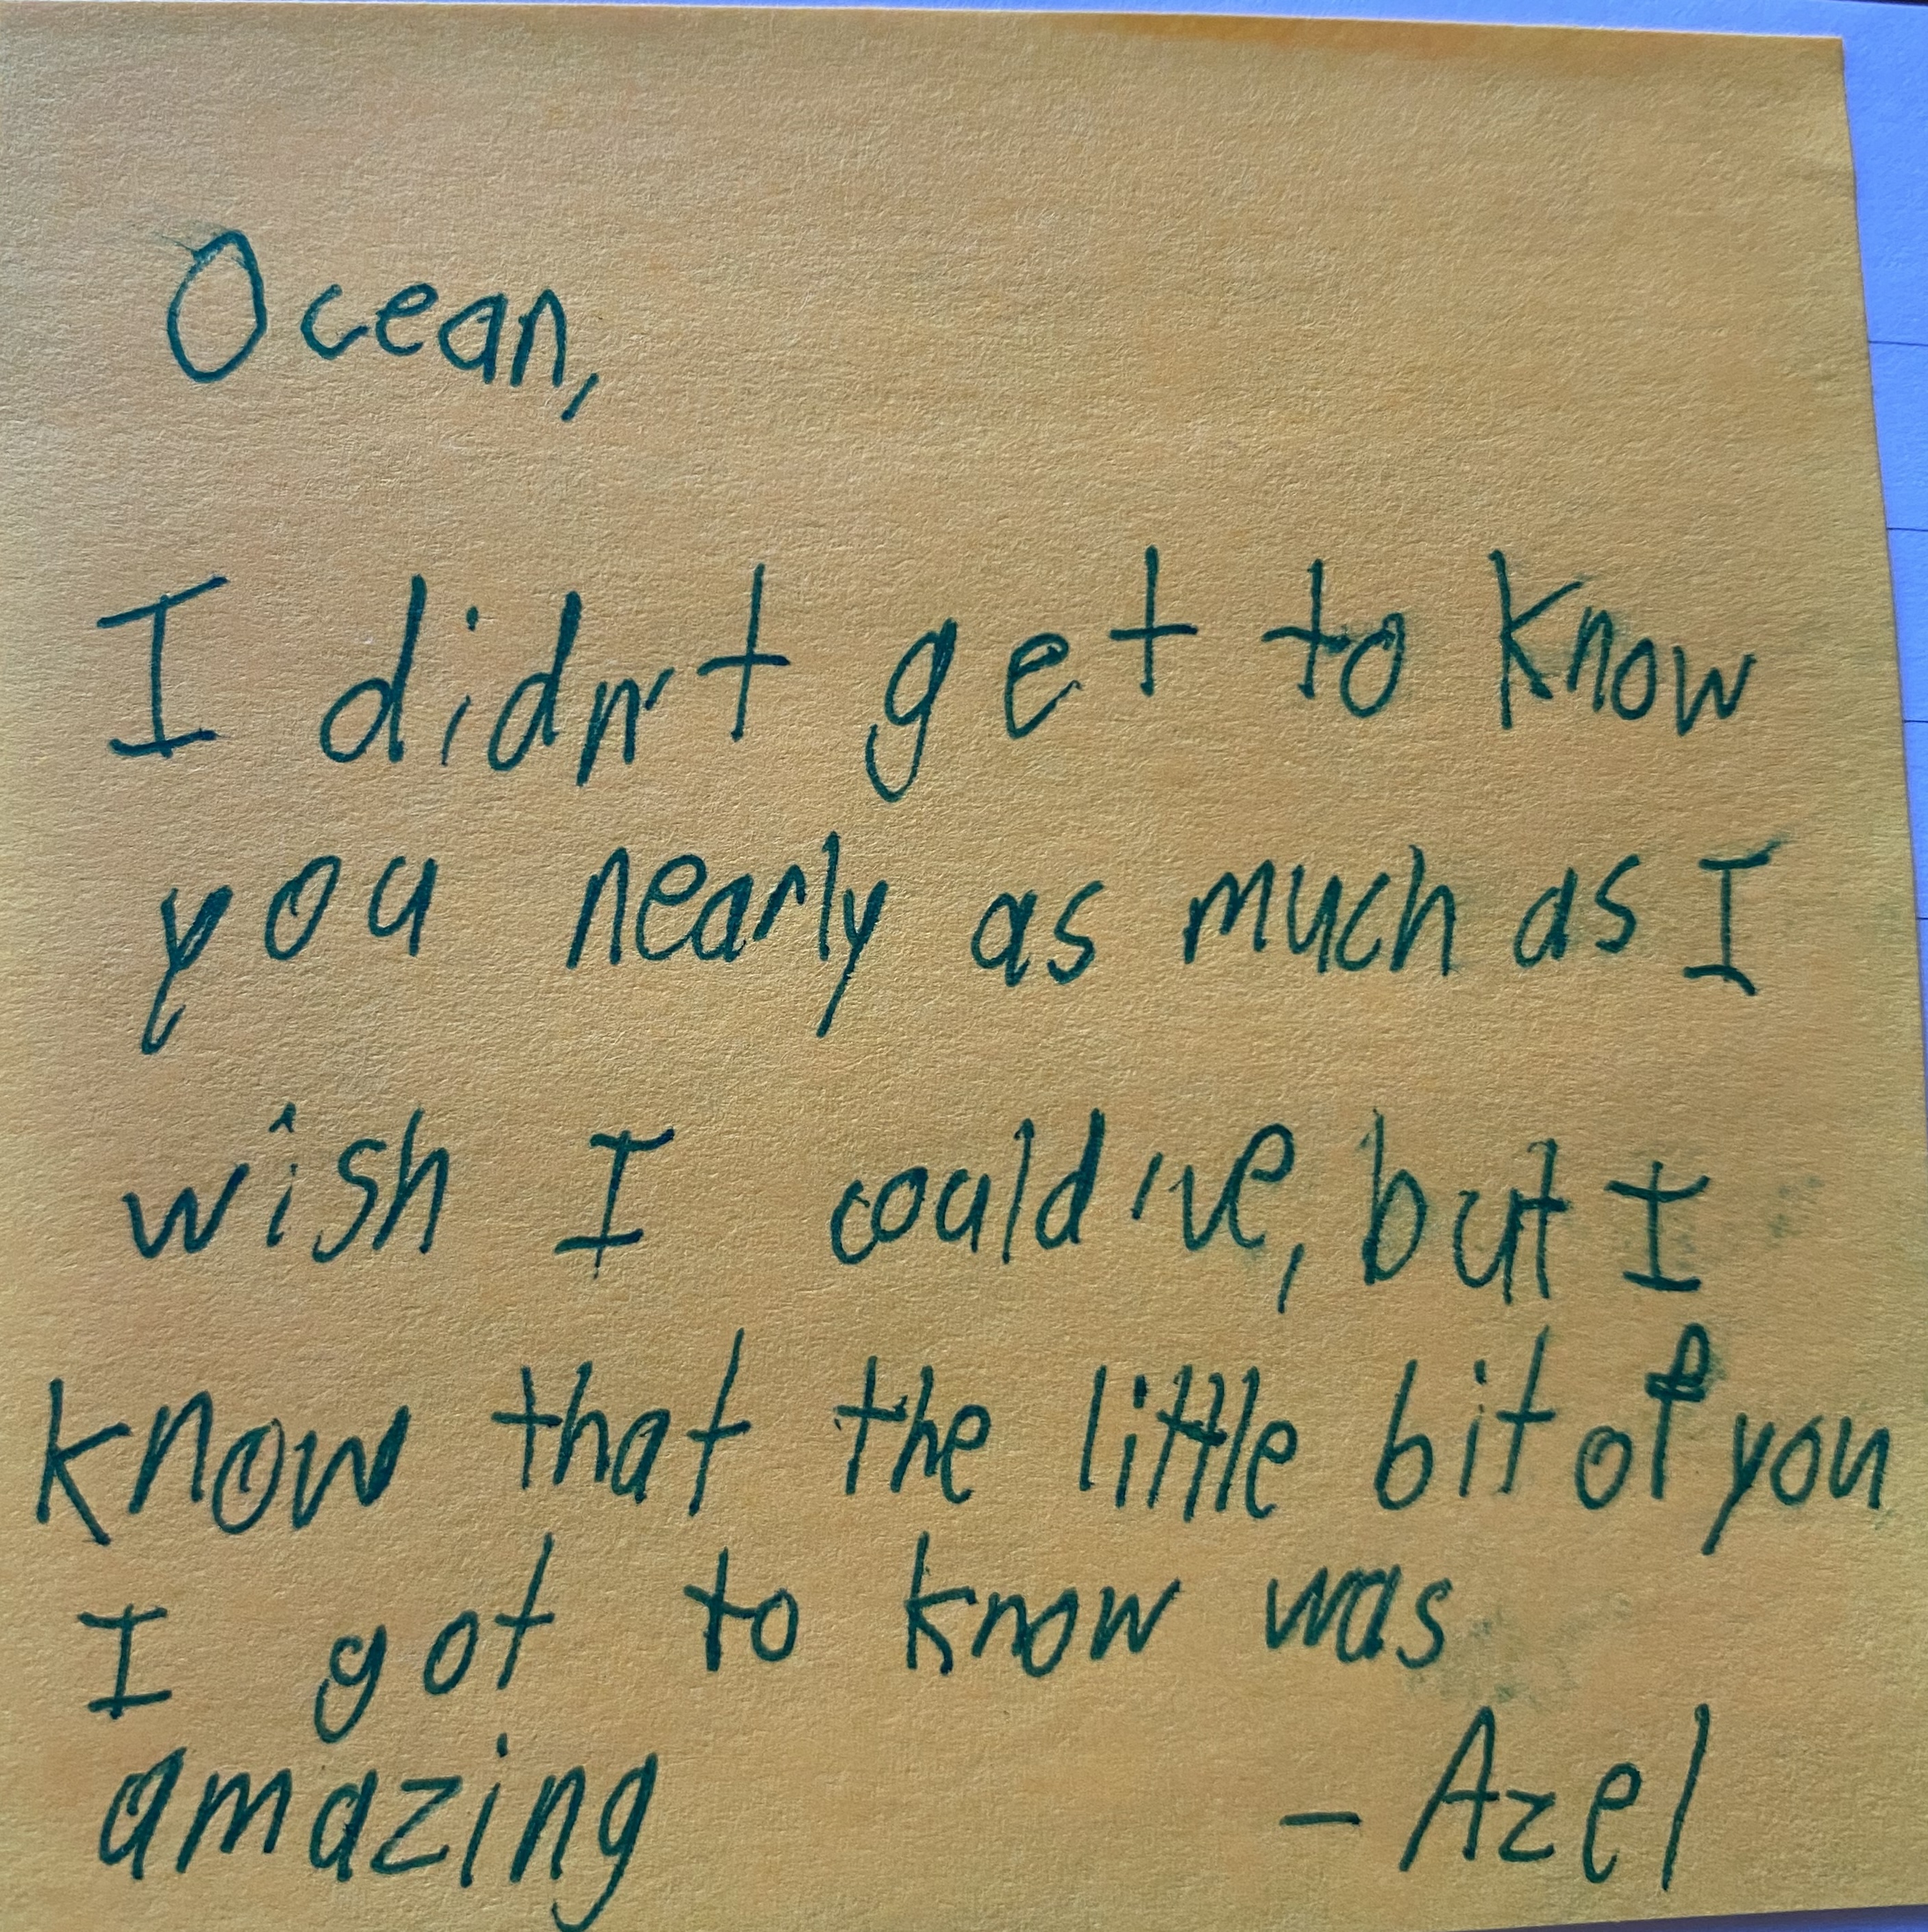 Ocean,
I didn't get to know
you nearly as much as I
wish I could've, but I
know that the little bit of you
I got to know was
amazing
- Azel